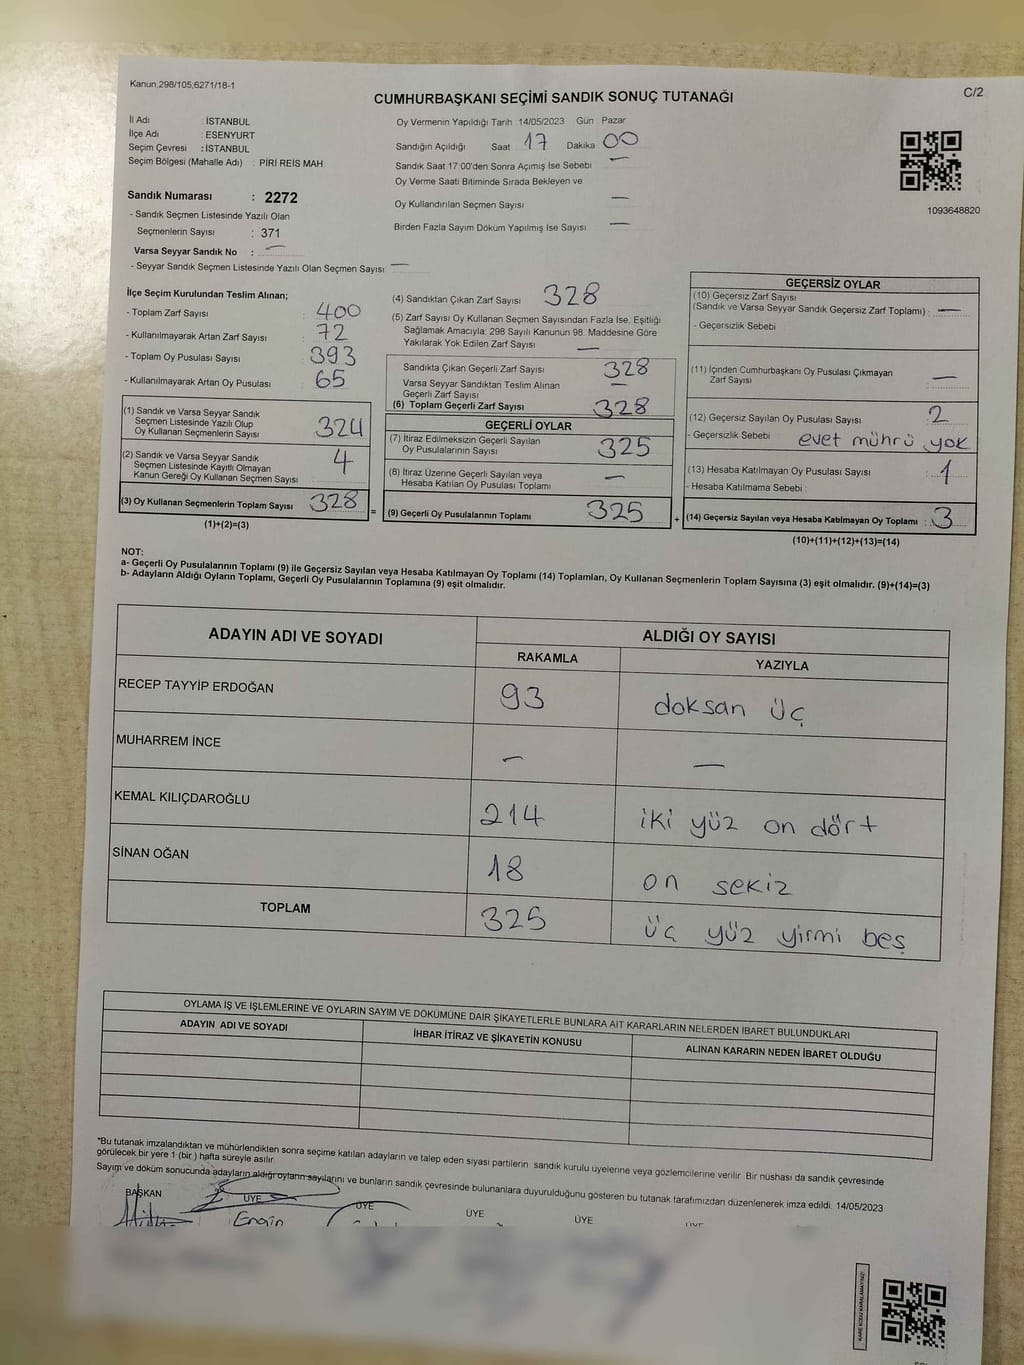 Kanun;298/105;6271/18-1
C/2
CUMHURBAŞKANI SEÇİMİ SANDIK SONUÇ TUTANAĞI
İl Adı : İSTANBUL
İlçe Adı : ESENYURT
Seçim Çevresi : İSTANBUL
Seçim Bölgesi (Mahalle Adı) : PİRİ REİS MAH.
Sandık Numarası : 2272
- Sandık Seçmen Listesinde Yazılı Olan
Seçmenlerin Sayısı : 371
Varsa Seyyar Sandık No : —
- Seyyar Sandık Seçmen Listesinde Yazılı Olan Seçmen Sayısı: —
Oy Vermenin Yapıldığı Tarih : 14/05/2023 Gün : Pazar
Sandığın Açıldığı Saat 17 Dakika 00
Sandık Saat 17:00'den Sonra Açımış İse Sebebi —
Oy Verme Saati Bitiminde Sırada Bekleyen ve
Oy Kullandırılan Seçmen Sayısı —
Birden Fazla Sayım Döküm Yapılmış İse Sayısı —
1093648820
İlçe Seçim Kurulundan Teslim Alınan;
- Toplam Zarf Sayısı : 400
- Kullanılmayarak Artan Zarf Sayısı : 72
- Toplam Oy Pusulası Sayısı : 393
- Kullanılmayarak Artan Oy Pusulası : 65
(1) Sandık ve Varsa Seyyar Sandık
Seçmen Listesinde Yazılı Olup
Oy Kullanan Seçmenlerin Sayısı : 324
(2) Sandık ve Varsa Seyyar Sandık
Seçmen Listesinde Kayıtlı Olmayan
Kanun Gereği Oy Kullanan Seçmen Sayısı : 4
(3) Oy Kullanan Seçmenlerin Toplam Sayısı : 328
(1)+(2)=(3)
(4) Sandıktan Çıkan Zarf Sayısı 328
(5) Zarf Sayısı Oy Kullanan Seçmen Sayısından Fazla İse, Eşitliği
Sağlamak Amacıyla; 298 Sayılı Kanunun 98. Maddesine Göre
Yakılarak Yok Edilen Zarf Sayısı —
Sandıkta Çıkan Geçerli Zarf Sayısı 328
Varsa Seyyar Sandıktan Teslim Alınan
Geçerli Zarf Sayısı —
(6) Toplam Geçerli Zarf Sayısı 328
GEÇERLİ OYLAR
(7) İtiraz Edilmeksizin Geçerli Sayılan
Oy Pusulalarının Sayısı 325
(8) İtiraz Üzerine Geçerli Sayılan veya
Hesaba Katılan Oy Pusulası Toplamı —
= (9) Geçerli Oy Pusulalarının Toplamı 325
GEÇERSİZ OYLAR
(10) Geçersiz Zarf Sayısı
(Sandık ve Varsa Seyyar Sandık Geçersiz Zarf Toplamı) : —
- Geçersizlik Sebebi
(11) İçinden Cumhurbaşkanı Oy Pusulası Çıkmayan
Zarf Sayısı : —
(12) Geçersiz Sayılan Oy Pusulası Sayısı : 2
- Geçersizlik Sebebi evet mührü yok
(13) Hesaba Katılmayan Oy Pusulası Sayısı : 1
- Hesaba Katılmama Sebebi :
+ (14) Geçersiz Sayılan veya Hesaba Katılmayan Oy Toplamı : 3
(10)+(11)+(12)+(13)=(14)
NOT:
a- Geçerli Oy Pusulalarının Toplamı (9) ile Geçersiz Sayılan veya Hesaba Katılmayan Oy Toplamı (14) Toplamları, Oy Kullanan Seçmenlerin Toplam Sayısına (3) eşit olmalıdır. (9)+(14)=(3)
b- Adayların Aldığı Oyların Toplamı, Geçerli Oy Pusulalarının Toplamına (9) eşit olmalıdır.
ADAYIN ADI VE SOYADI
ALDIĞI OY SAYISI
RAKAMLA YAZIYLA
RECEP TAYYİP ERDOĞAN 93 doksan üç
MUHARREM İNCE — —
KEMAL KILIÇDAROĞLU 214 iki yüz on dört
SİNAN OĞAN 18 on sekiz
TOPLAM 325 üç yüz yirmi beş
OYLAMA İŞ VE İŞLEMLERİNE VE OYLARIN SAYIM VE DÖKÜMÜNE DAİR ŞİKAYETLERLE BUNLARA AİT KARARLARIN NELERDEN İBARET BULUNDUKLARI
ADAYIN ADI VE SOYADI İHBAR İTİRAZ VE ŞİKAYETİN KONUSU ALINAN KARARIN NEDEN İBARET OLDUĞU
*Bu tutanak imzalandıktan ve mühürlendikten sonra seçime katılan adayların ve talep eden siyasi partilerin sandık kurulu üyelerine veya gözlemcilerine verilir. Bir nüshası da sandık çevresinde
görülecek bir yere 1 (bir ) hafta süreyle asılır.
Sayım ve döküm sonucunda adayların aldığı oyların sayılarını ve bunların sandık çevresinde bulunanlara duyurulduğunu gösteren bu tutanak tarafımızdan düzenlenerek imza edildi. 14/05/2023
BAŞKAN ÜYE ÜYE ÜYE ÜYE
Engin